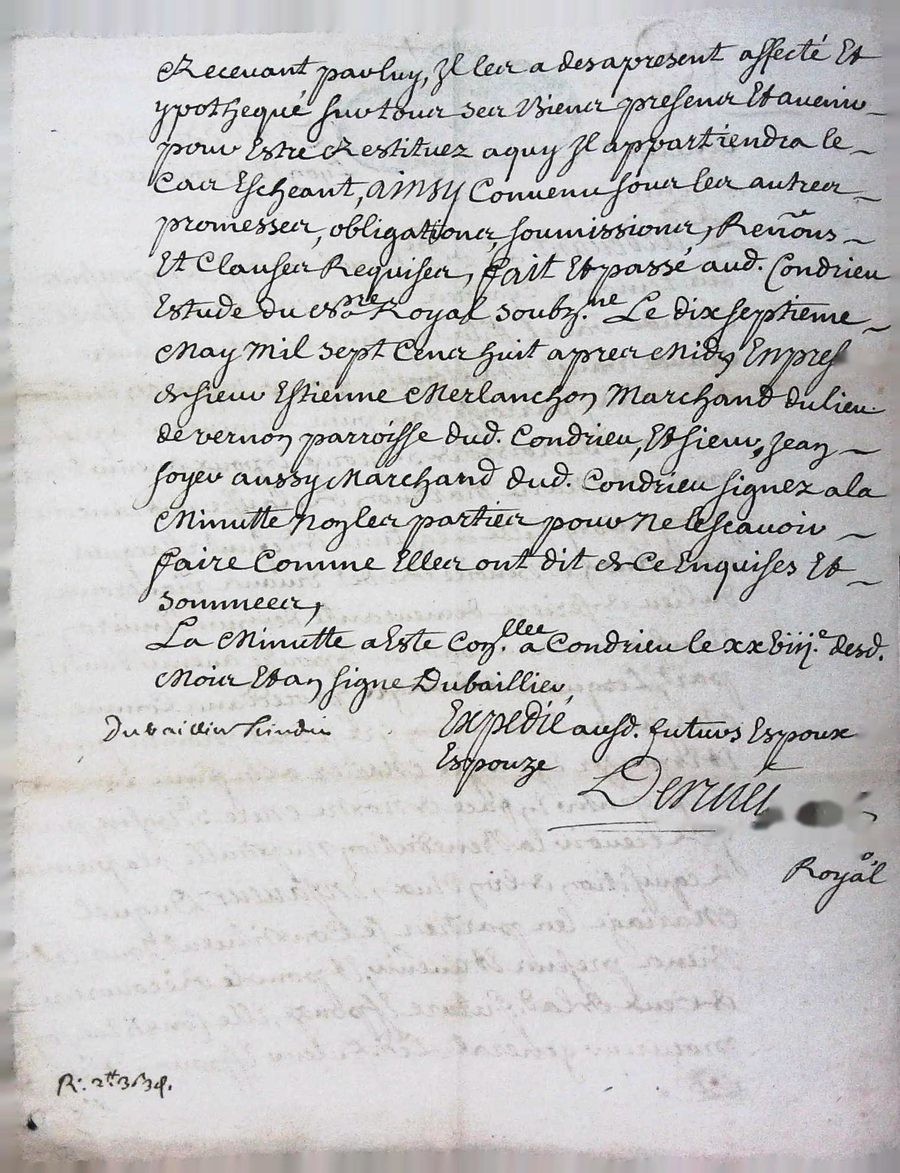 Recevant par luy, Il les a des apresent affecté Et
ypothequé sur tous ses Biens presens Et avenir
pour Estre Restituez a quy Il appartiendra le
Cas Escheant, ainsy Convenu sous les autres
promesses, obligations, soumissions, Renõns
Et Clauses Requises, fait Et passé aud. Condrieu
Estude du nore Royal soubz.ne Le dix septieme
May Mil sept Cens huit apres Midy En pres
de sieur Estienne Merlanchon Marchand du lieu
de vernon parroisse dud. Condrieu, Et sieur Jean
soyer aussy Marchand dud. Condrieu signez a la
Minutte Non les parties pour Ne le scavoir
faire Comme Elles ont dit de Ce Enquises Et
sommees,
La Minutte a Este Con.llee a Condrieu le xxviij.e desd.
Mois Et an signe Dubaillier,
Dubaillier
Expedié ausd. futurs Espoux
Espouze
Royal